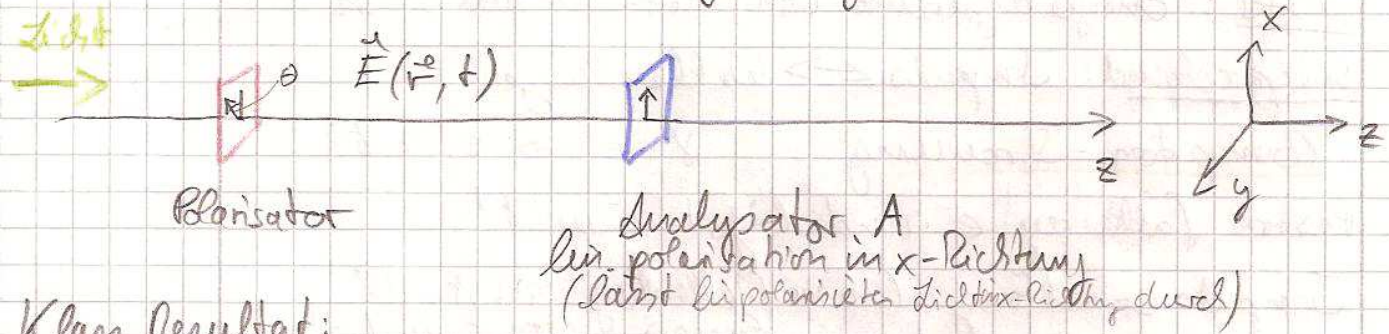 Licht
θ
E⃗(r⃗, t)
x
z
z
y
Polarisator
Analysator A
lin. polarisation in x-Richtung
(lässt lin polarisiertes Licht in x-Richtung durch)
Klass. Resultat: